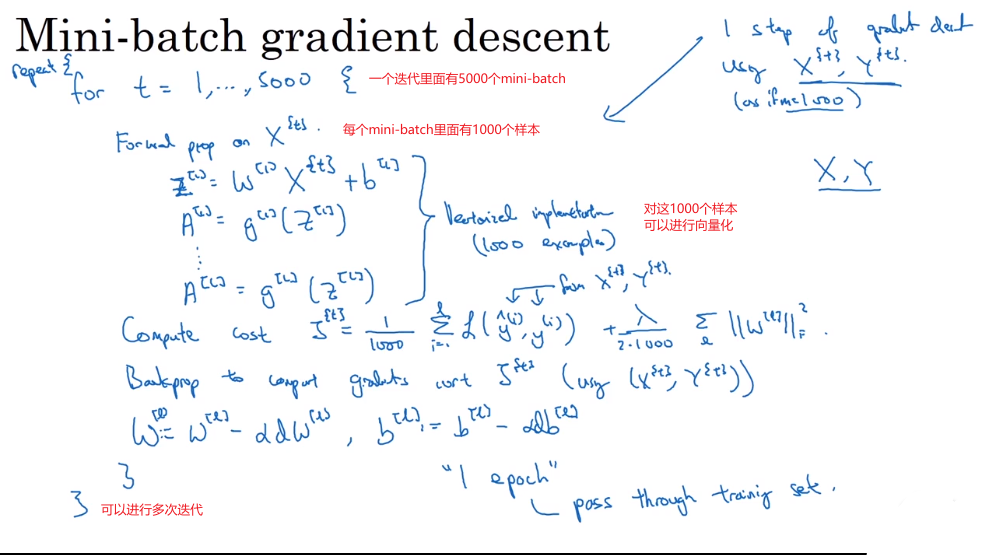 Mini-batch gradient descent
repeat {
for t = 1,...,5000 {
一个迭代里面有5000个mini-batch
1 step of gradient descent
using X^{t}, Y^{t}.
(as if m=1000)
Forward prop on X^{t}.
每个mini-batch里面有1000个样本
X, Y
Z^[1] = W^[1] X^{t} + b^[1]
A^[1] = g^[1](Z^[1])
⋮
A^[L] = g^[L](Z^[L])
Vectorized implementation
(1000 examples)
对这1000个样本
可以进行向量化
from X^{t}, Y^{t}.
Compute cost J^{t} = 1/1000 Σ_{i=1}^{l} L(ŷ^(i), y^(i)) + λ/(2·1000) Σ_l ||W^[l]||_F^2.
Backprop to compute gradients wrt J^{t} (using (X^{t}, Y^{t}))
W^[l] := W^[l] - αdW^[l], b^[l] := b^[l] - αdb^[l]
}
"1 epoch"
pass through training set.
}
可以进行多次迭代